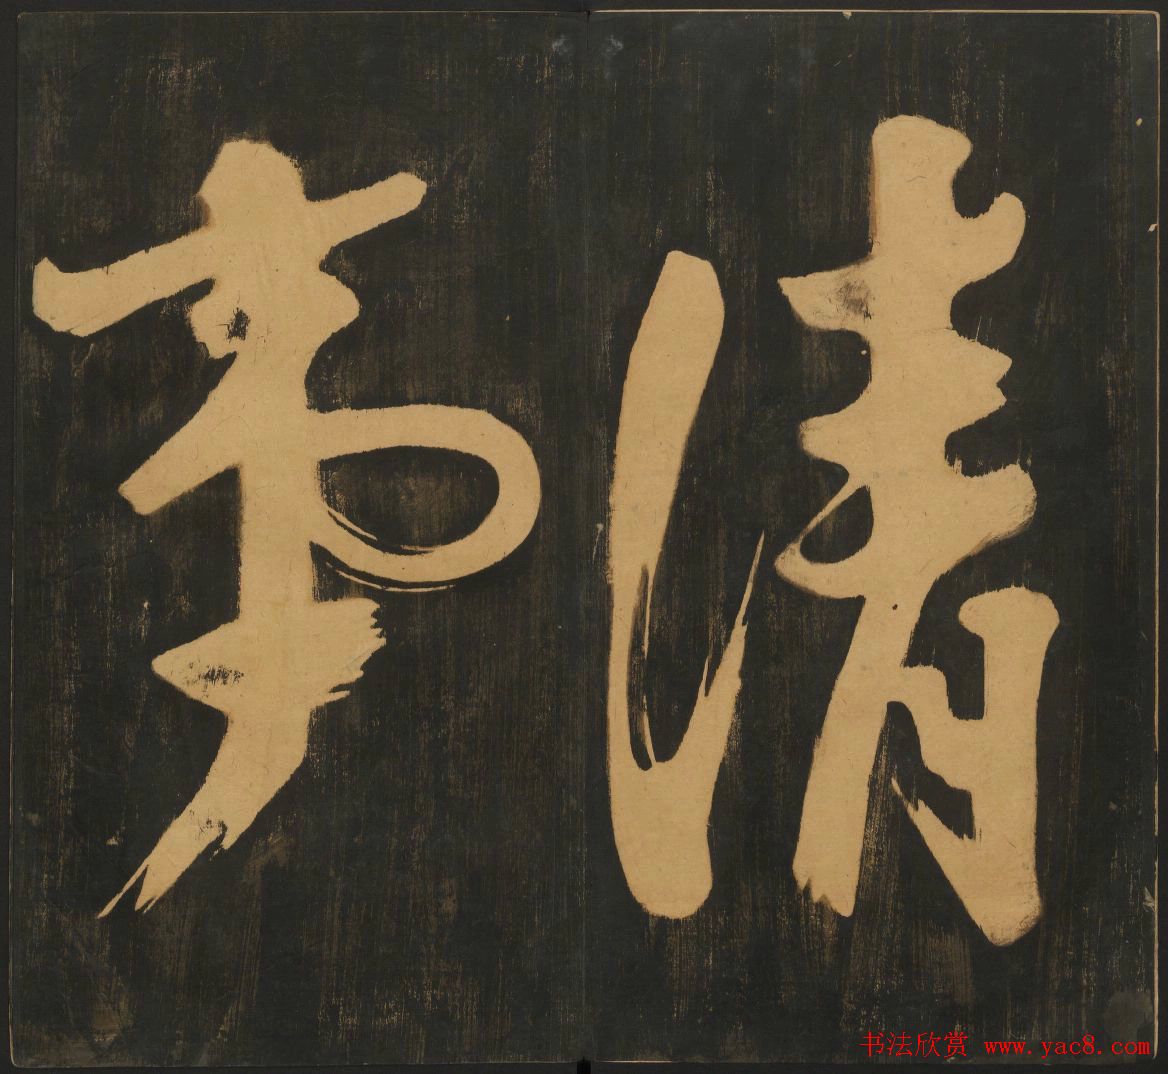 清
事
书法欣赏 www.yac8.com